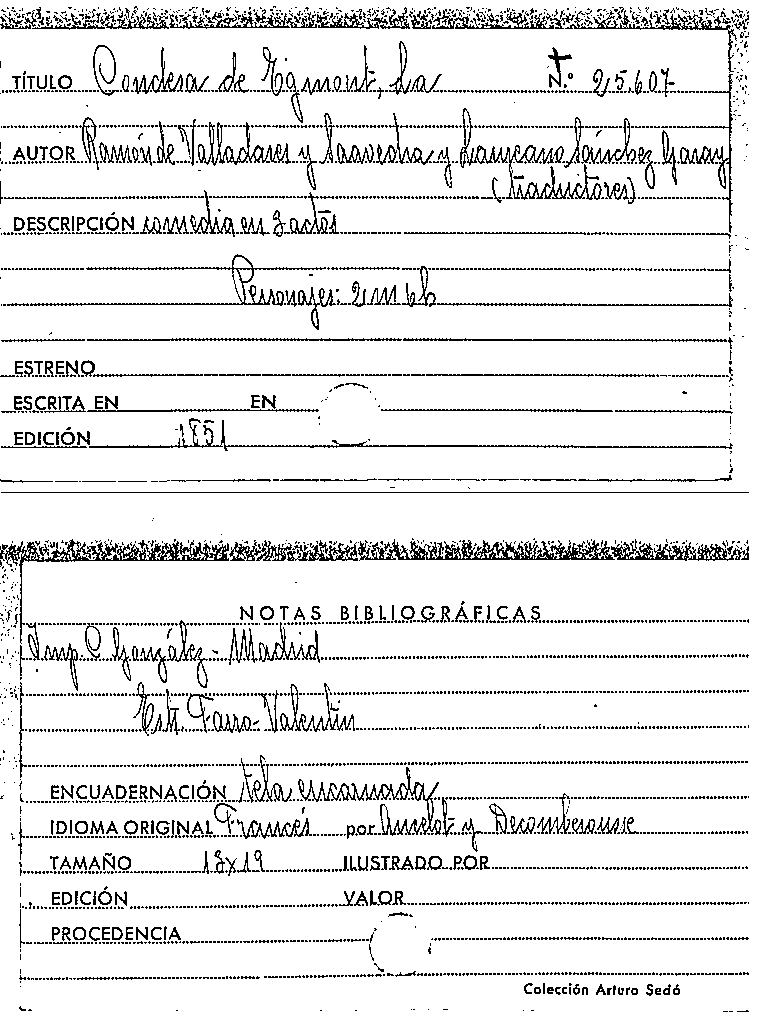 TÍTULO Condesa de Egmont, La N.º 25.607
AUTOR Ramón de Valladares y Saavedra y Laureano Sánchez Garay
(traductores)
DESCRIPCIÓN comedia en 3 actos
Personajes: 2 m 6 h
ESTRENO
ESCRITA EN EN
EDICIÓN 1851
NOTAS BIBLIOGRÁFICAS
Imp. C González - Madrid
Estr. Farro-Valentin
ENCUADERNACIÓN tela encarnada
IDIOMA ORIGINAL Francés por Ancelot y Decomberousse
TAMAÑO 13x19 ILUSTRADO POR
EDICIÓN VALOR
PROCEDENCIA
Colección Arturo Sedó